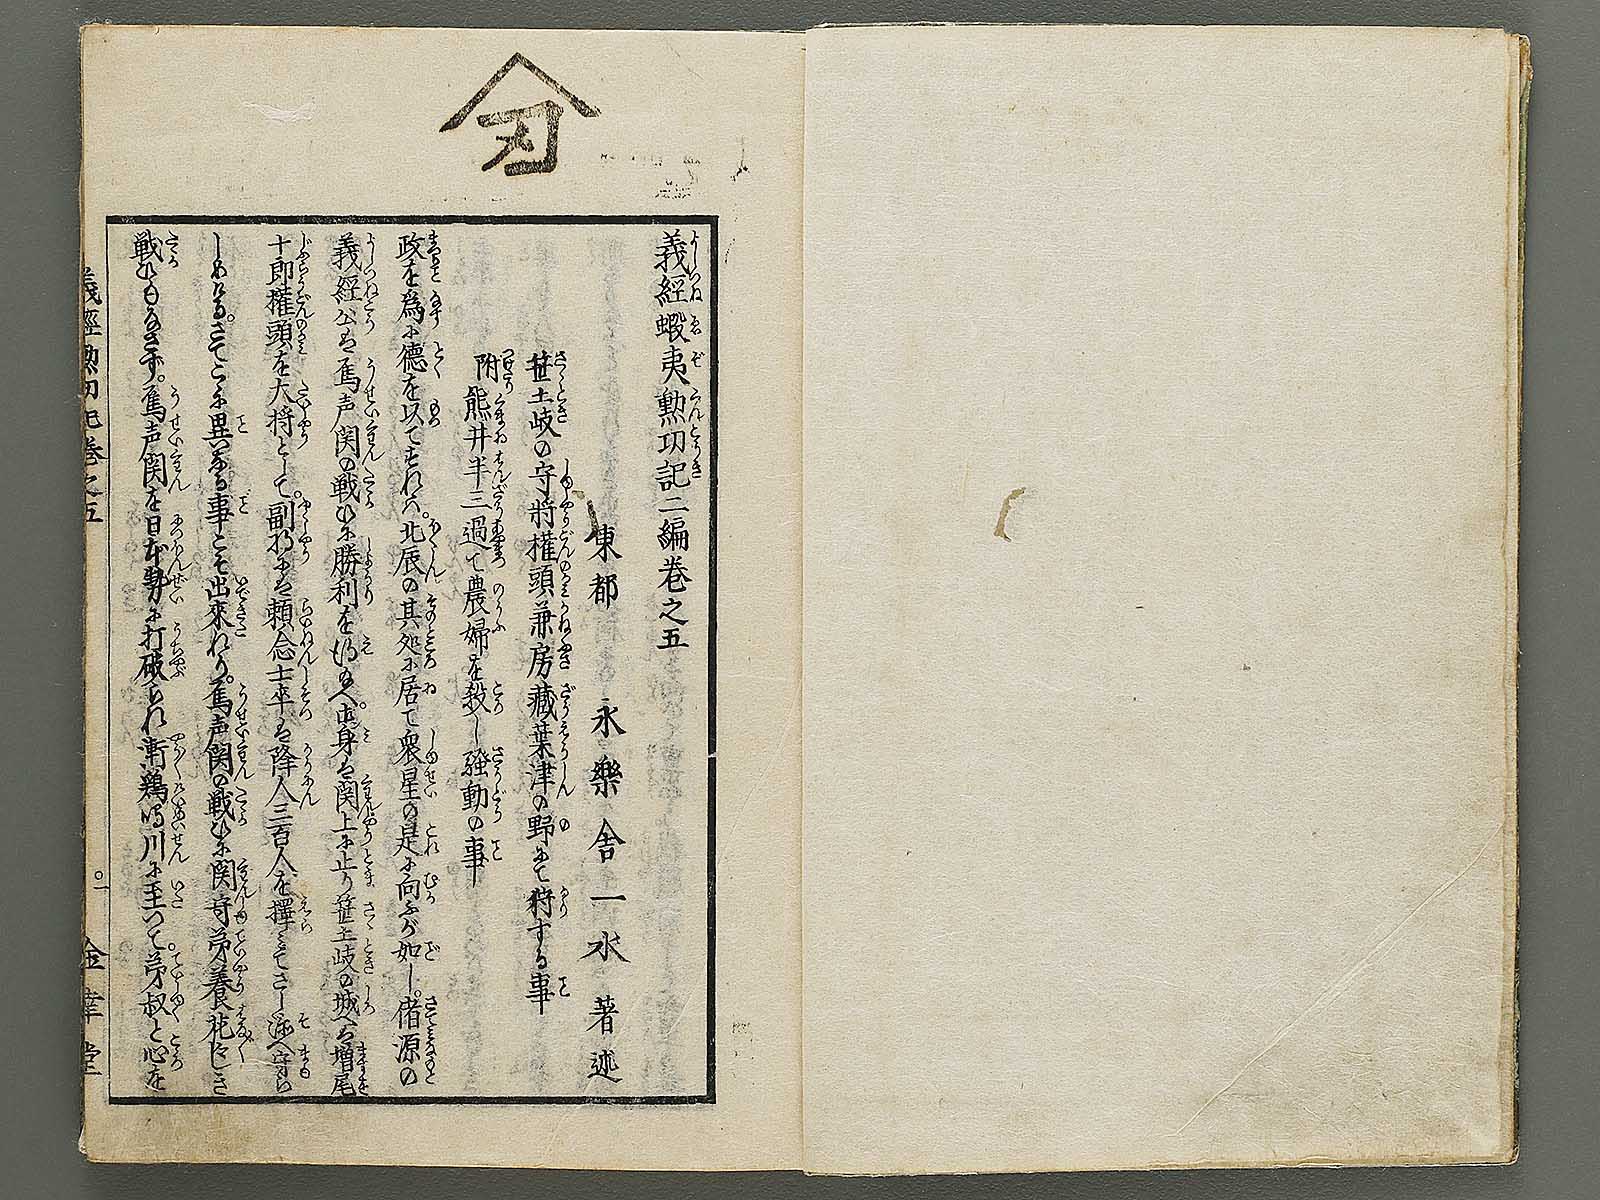 義經蝦夷勲功記二編巻之五
東都 永樂舎一水著述
笹土岐の守將權頭兼房藏葉津の野にて狩する事
附熊井半三過て農婦を殺し騒動の事
政を為に徳を以てすれバ。北辰の其処に居て衆星の是に向ふが如し。偖源の
義經公は篶声関の戦ひに勝利を得給へ。御身は関上に止り笹土岐の城へは増尾
十郎權頭を大将として。副将には頼念士卒は降人三百人を擇えてさし添へ守ら
しめける。さてこゝに異なる事こそ出來れり。篶声関の戦ひに関守弟養花じき
戦ひもなさず。篶声関を日本勢に打破られ漸鶏鳴川に至つて。弟叔と心を
義經勲功記巻之五
〇一
金華堂